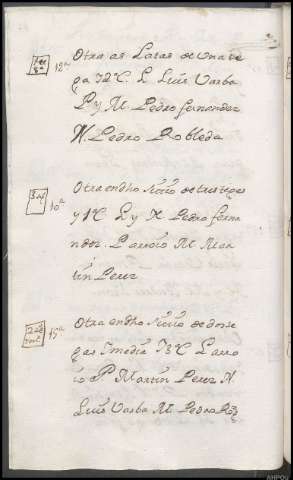 12ª Otra as Latas de una ve
ga 32 C. L Luis Varba
P y M. Pedro fernandez
N. Pedro Robleda
10ª Otra en dho Sitio de tres vegas
y 1 C L y N Pedro ferna
ndez. P arroio M. Mar
tin Perez
15ª Otra en dho Sitio de dos ve
gas I media 3 C L arro
io P. Martin Perez N
Luis Varba M. Pedro
AHPOU